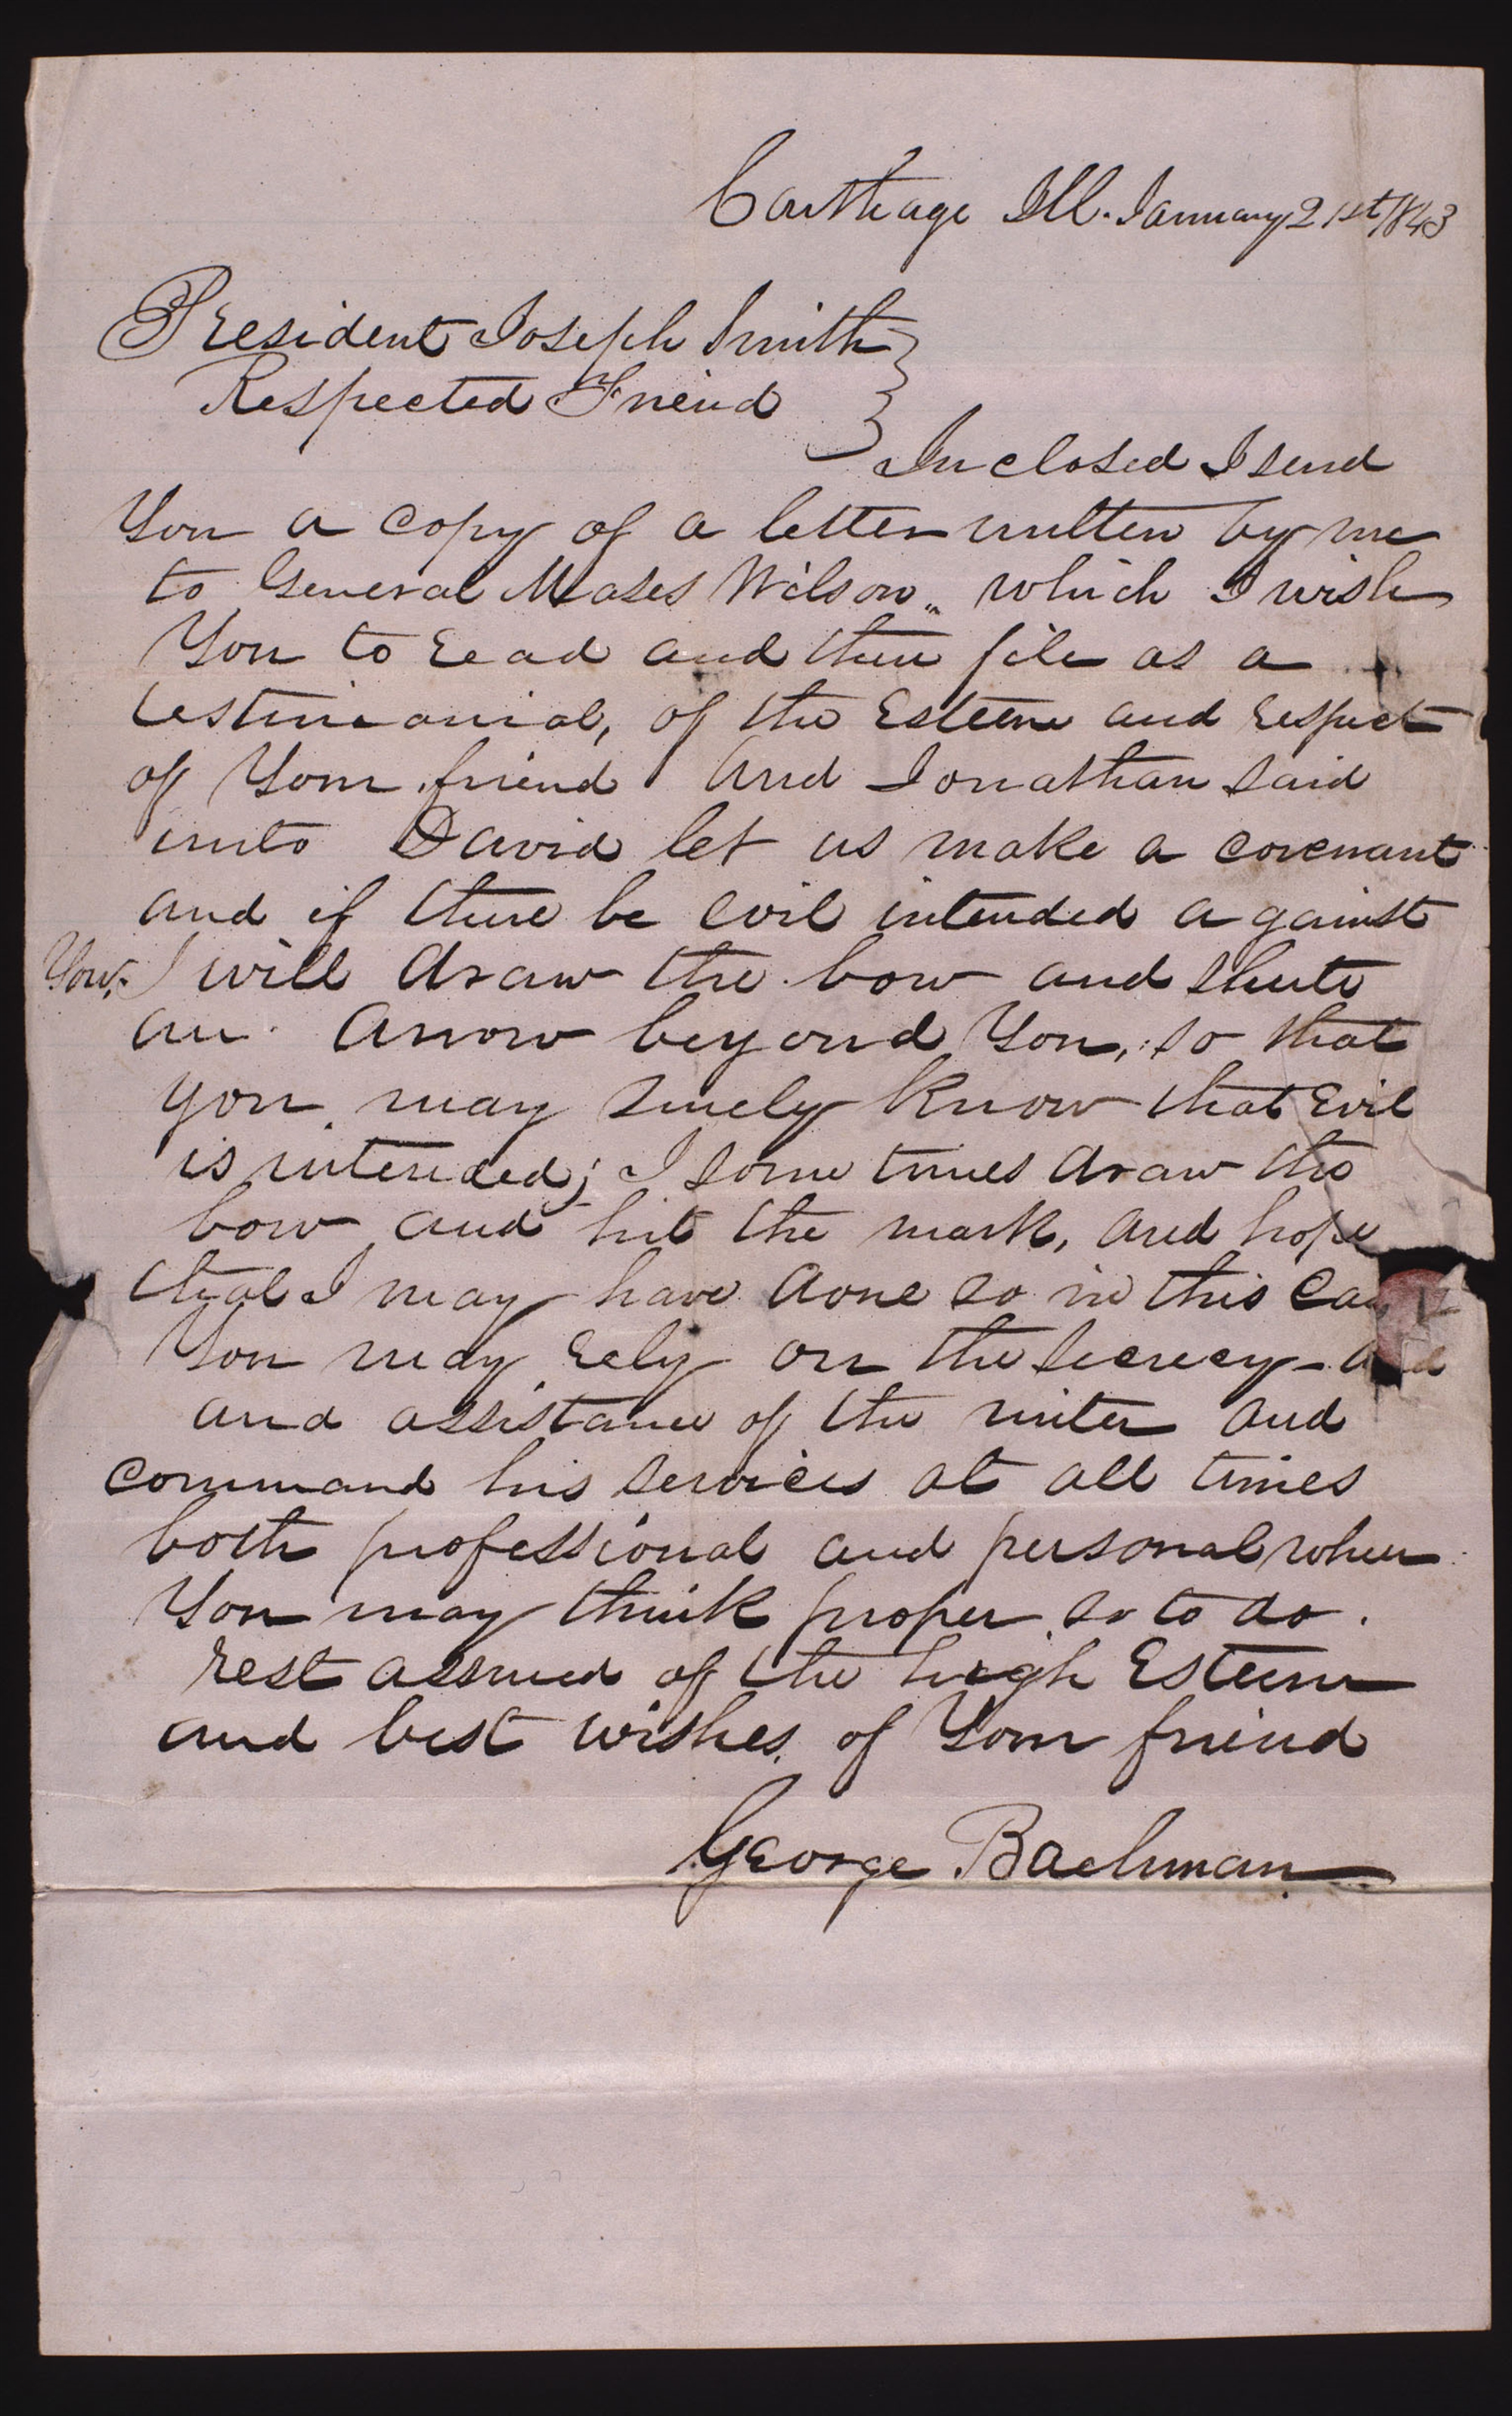 Carthage Ill. January 21st 1843
President Joseph Smith
Respected Friend
Inclosed I send
You a copy of a letter written by me
to General Moses Wilson,, which I wish
You to read and then file as a
testimonial, of the Esteem and respect
of Your friend And Jonathan said
unto David let us make a covenant
and if there be evil intended against
You, I will draw the bow and shute
an arrow beyond You, so that
you may surely know that Evil
is intended; I some times draw the
bow and hit the mark, and hope
that I may have done so in this
You may rely on the secrecy and
and assistance of the writer and
command his services at all times
both professional and personal when
You may think proper so to do.
rest assured of the high Esteem
and best wishes of Your friend
George Bachman